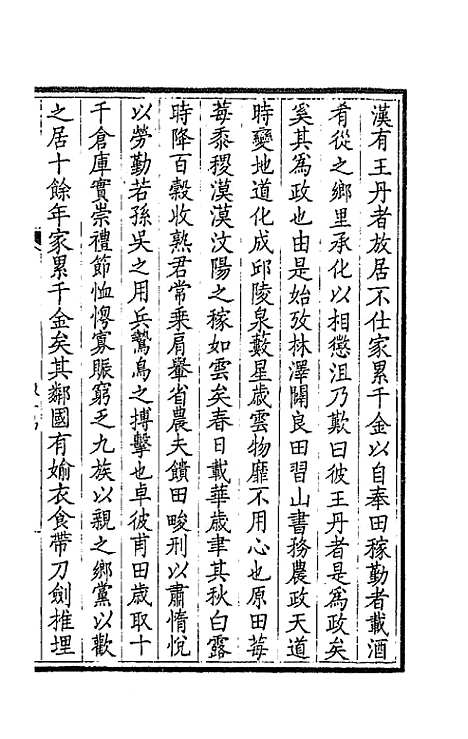 漢有王丹者故居不仕家累千金以自奉田稼勤者載酒
肴從之鄉里承化以相懲沮乃歎曰彼王丹者是為政矣
奚其為政也由是始攷林澤闢良田習山書務農政天道
時變地道化成邱陵泉藪星歲雲物靡不用心也原田莓
莓黍稷漠漠汶陽之稼如雲矣春日載華歲聿其秋白露
時降百穀收熟君常乗肩轝省農夫饋田畯刑以肅惰悅
以勞勤若孫吳之用兵鷙鳥之搏擊也卓彼甫田歲取十
千倉庫實崇禮節恤惸寡賑窮乏九族以親之鄉黨以歡
之居十餘年家累千金矣其鄰國有媮衣食帶刀劍推埋